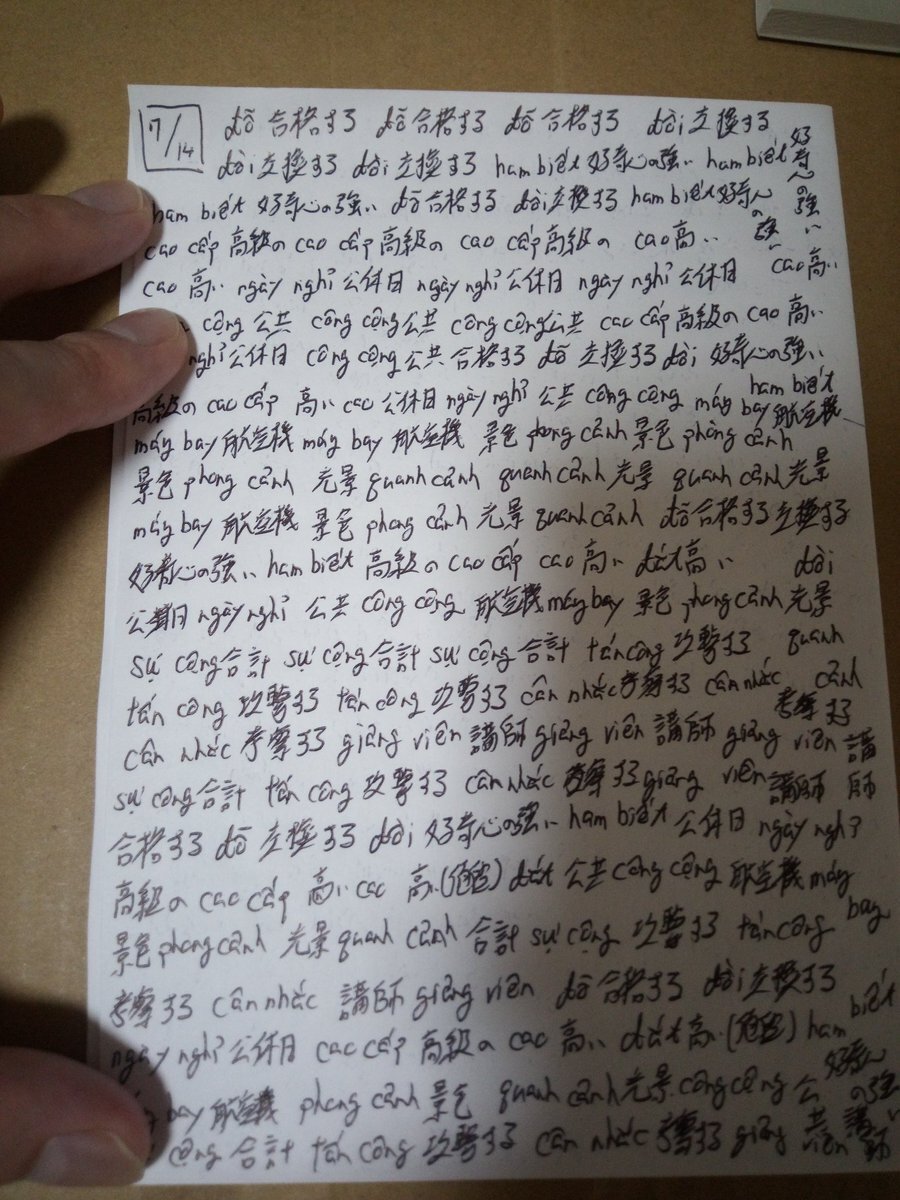 7/14 đỗ 合格する đỗ 合格する đỗ 合格する đổi 交換する
đổi 交換する đổi 交換する ham biết 好奇心の強い ham biết 好奇心の強い
ham biết 好奇心の強い đỗ 合格する đổi 交換する ham biết 好奇心の強い
cao cấp 高級の cao cấp 高級の cao cấp 高級の cao 高い
cao 高い ngày nghỉ 公休日 ngày nghỉ 公休日 ngày nghỉ 公休日 cao 高い
cộng 公共 công cộng 公共 công cộng 公共 cao cấp 高級の cao 高い
nghỉ 公休日 công cộng 公共 合格する đỗ 交換する đổi 好奇心の強い
高級の cao cấp 高い cao 公休日 ngày nghỉ 公共 công cộng máy bay 航空機 ham biết
máy bay 航空機 máy bay 航空機 景色 phong cảnh 景色 phong cảnh
景色 phong cảnh 光景 quanh cảnh quanh cảnh 光景 quanh cảnh 光景
máy bay 航空機 景色 phong cảnh 光景 quanh cảnh đỗ 合格する 交換する
好奇心の強い ham biết 高級の cao cấp cao 高い đắt 高い đổi
公休日 ngày nghỉ 公共 công cộng 航空機 máy bay 景色 phong cảnh 光景
sự cộng 合計 sự cộng 合計 sự cộng 合計 tấn công 攻撃する quanh
tấn công 攻撃する tấn công 攻撃する cân nhắc 考察する cân nhắc cảnh
cân nhắc 考察する giảng viên 講師 giảng viên 講師 giảng viên 講師 考察する
sự cộng 合計 tấn công 攻撃する cân nhắc 考察する giảng viên 講師
合格する đỗ 交換する đổi 好奇心の強い ham biết 公休日 ngày nghỉ
高級の cao cấp 高い cao 高い đắt 公共 công cộng 航空機 máy
景色 phong cảnh 光景 quanh cảnh 合計 sự cộng 攻撃する tấn công bay
考察する cân nhắc 講師 giảng viên đỗ 合格する đổi 交換する
ngày nghỉ 公休日 cao cấp 高級の cao 高い đắt 高い ham biết
bay 航空機 phong cảnh 景色 quanh cảnh 光景 công cộng 公共 好奇心の強い
cộng 合計 tấn công 攻撃する cân nhắc 考察する giảng viên 講師